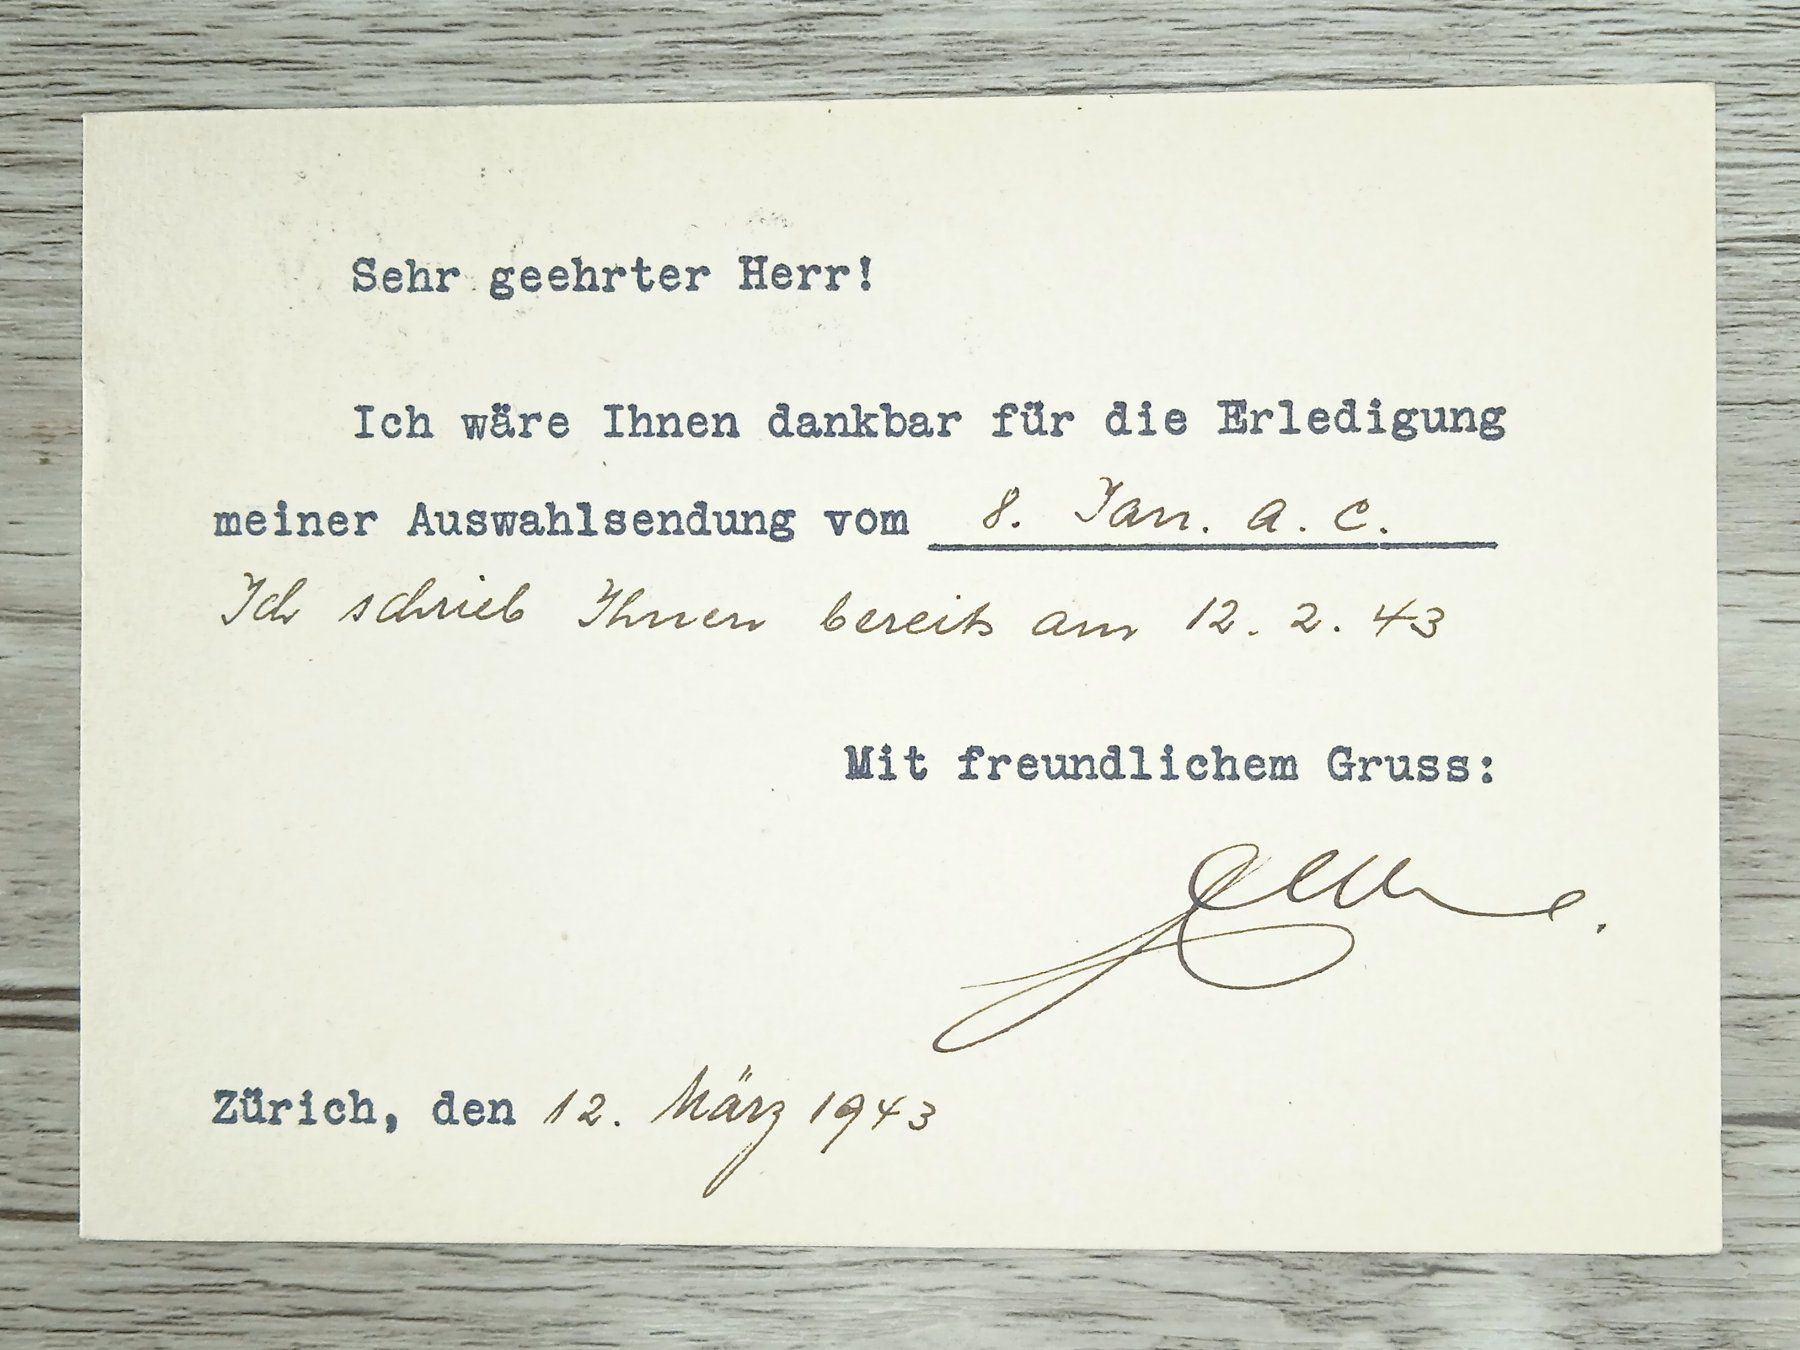 Sehr geehrter Herr!
Ich wäre Ihnen dankbar für die Erledigung
meiner Auswahlsendung vom 8. Jan. a. c.
Ich schrieb Ihnen bereits am 12. 2. 43
Mit freundlichem Gruss:
Zürich, den 12. März 1943